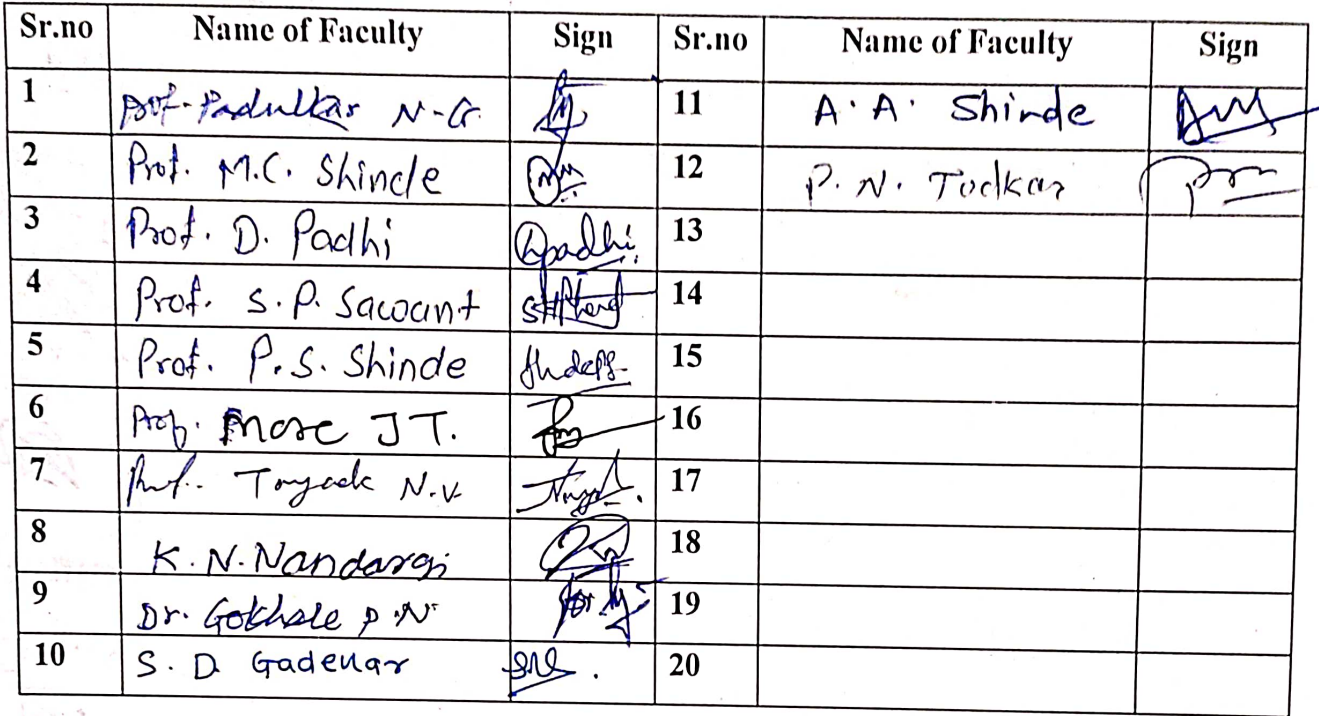 Sr.no Name of Faculty Sign Sr.no Name of Faculty Sign
1 Prof. Padulkar N.G. 11 A. A. Shinde
2 Prof. M.C. Shinde 12 P. N. Todkar
3 Prof. D. Padhi Dpadhi 13
4 Prof. S. P. Sawant 14
5 Prof. P. S. Shinde 15
6 Prof. More J T. 16
7 Prof. N.V. 17
8 K. N. Nandargi 18
9 Dr. Gokhale P.N 19
10 S. D. 20